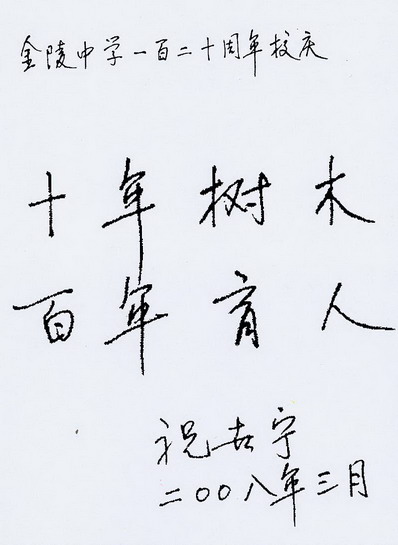 金陵中学一百二十周年校庆
十年树木
百年育人
祝世宁
二〇〇八年三月